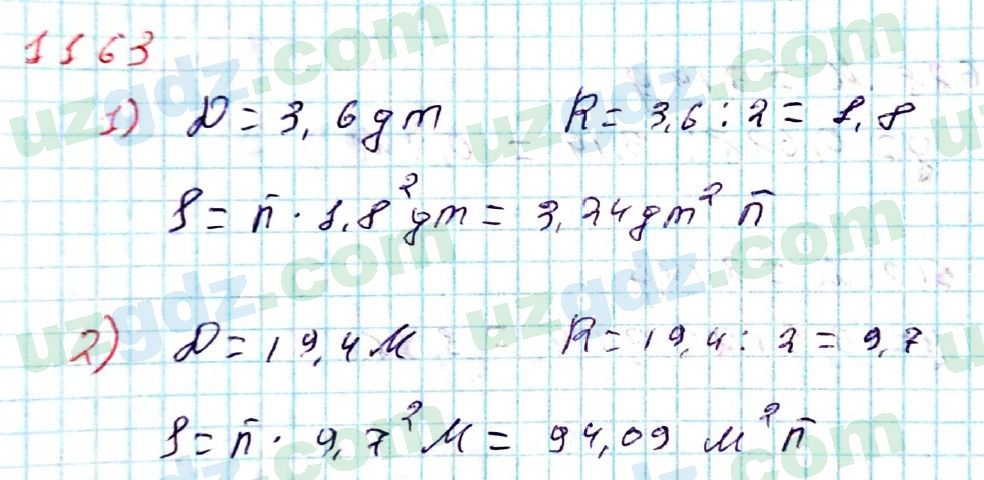 1163
1) D = 3,6 gm R = 3,6 : 2 = 1,8
S = π · 1,8² gm = 3,24 gm² π
2) D = 19,4 м R = 19,4 : 2 = 9,7
S = π · 9,7² м = 94,09 м² π
uzgdz.com